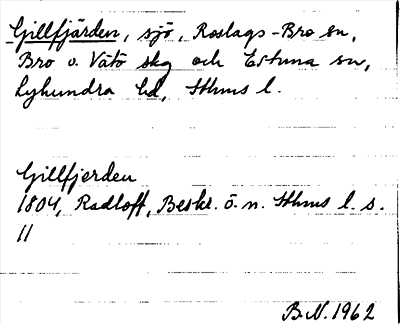 Gillfjärden, sjö, Roslags-Bro sn,
Bro o. Vätö skg och Estuna sn,
Lyhundra hd, Sthms l.
Gillfjerden
1804, Radloff, Beskr. ö. n. Sthms l. s.
11
B.N. 1962